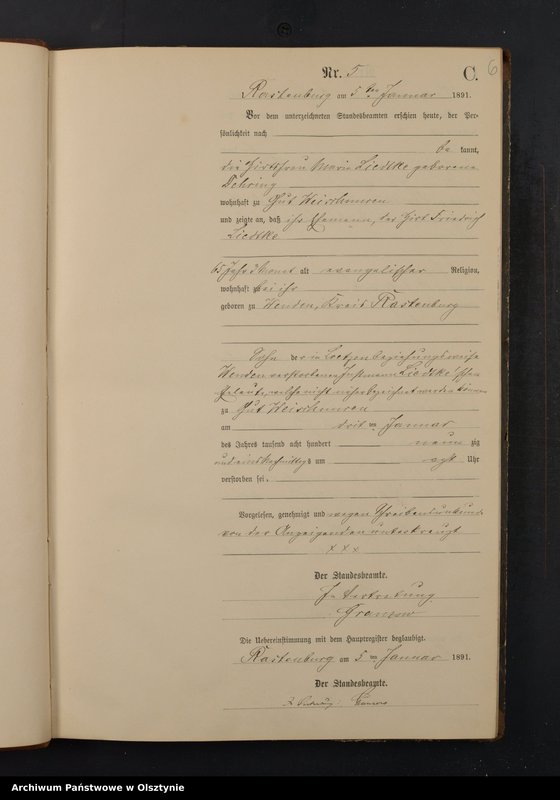 6
Nr. 5
C.
Rastenburg am 5ten Januar 1891.
Vor dem unterzeichneten Standesbeamten erschien heute, der Per-
sönlichkeit nach
be kannt,
die Hirtsfrau Marie Liedtke geborene
Dehring
wohnhaft zu Gut Weischnuren
und zeigte an, daß ihr Ehemann, der Hirt Friedrich
Liedtke
65 Jahr Monat alt evangelischer Religion,
wohnhaft zu bei ihr
geboren zu Wenden, Kreis Rastenburg
Sohn der in Loetzen beziehungsweise
Wenden verstorbenen Instmann Liedtke'schen
Eheleute, welche nicht näher bezeichnet werden können
zu Gut Weischnuren
am dritten Januar
des Jahres tausend acht hundert neun zig
und eins Nachmittags um acht Uhr
verstorben sei.
Vorgelesen, genehmigt und wegen Schreibensunkunde
von der Anzeigenden unterkreuzt
x x x
Der Standesbeamte.
In Vertretung
Granzow
Die Uebereinstimmung mit dem Hauptregister beglaubigt.
Rastenburg am 5ten Januar 1891.
Der Standesbeamte.
In Vertretung: Granzow
Archiwum Państwowe w Olsztynie